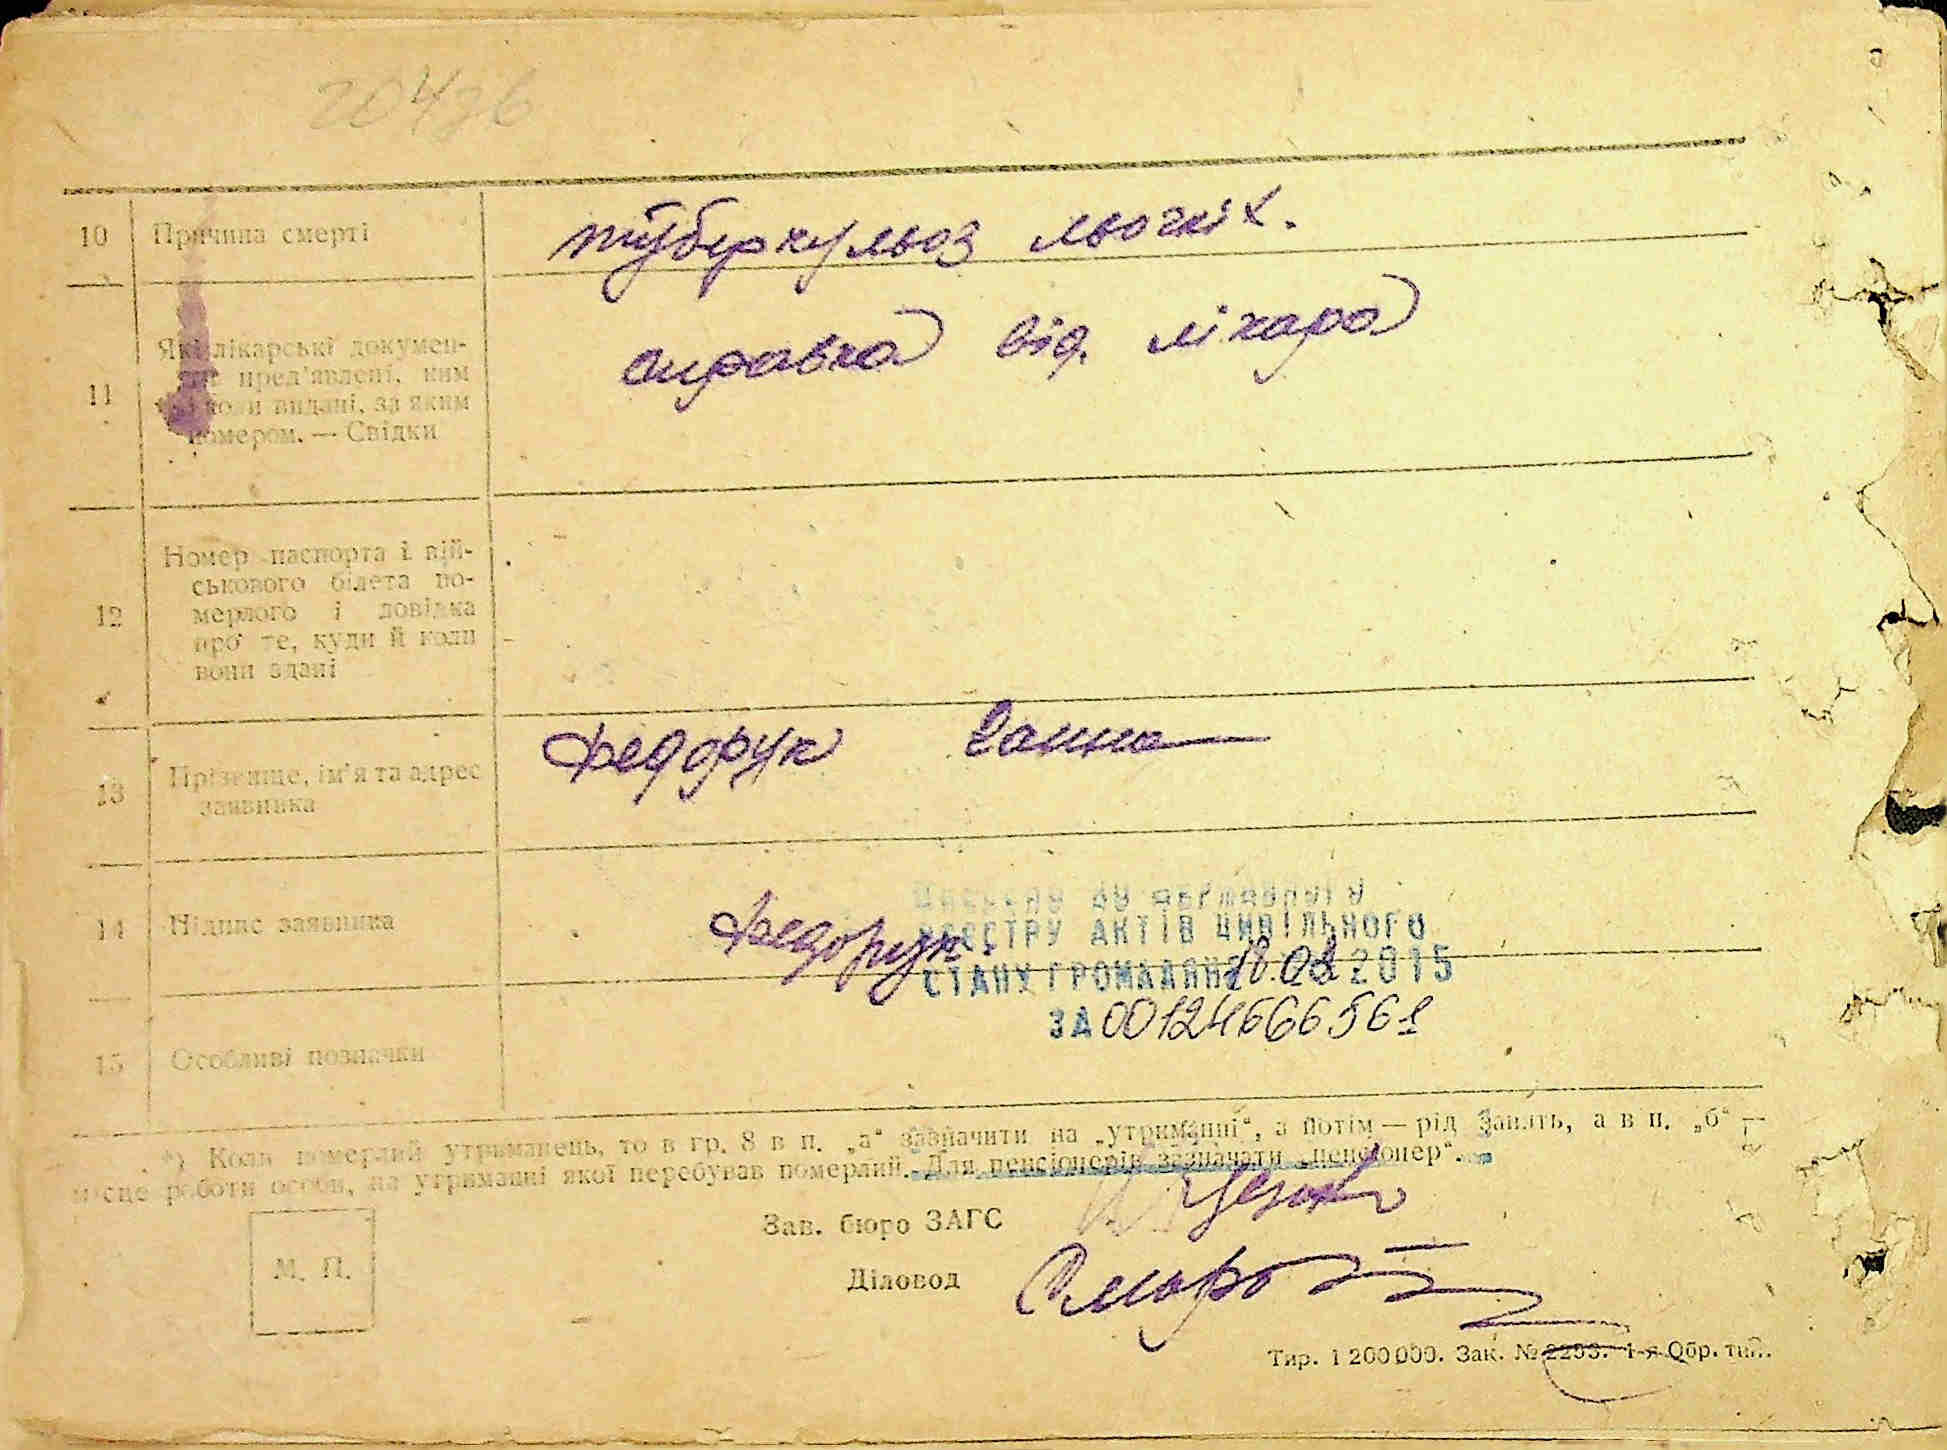 10 Причина смерті туберкульоз льогкіх.
11 Які лікарські докумен-
ти пред'явлені, ким
і коли видані, за яким
номером. — Свідки
справка від лікара
12 Номер паспорта і вій-
ськового білета по-
мерлого і довідка
про те, куди й коли
вони здані
13 Прізвище, ім'я та адрес
заявника
Федорук Ганна
14 Підпис заявника Федорук
державного
РЕЄСТРУ АКТІВ ЦИВІЛЬНОГО
СТАНУ ГРОМАДЯН 18.08.2015
ЗА 00124666561
15 Особливі позначки
*) Коли померлий утриманець, то в гр. 8 в п. „а“ зазначити на „утриманні“, а потім — рід занять, а в п. „б“ —
місце роботи особи, на утриманні якої перебував померлий. Для пенсіонерів зазначати „пенсіонер“.
Зав. бюро ЗАГС
М. П.
Діловод
Тир. 1 200 000. Зак. № 2293. 1-я Обр. тип.